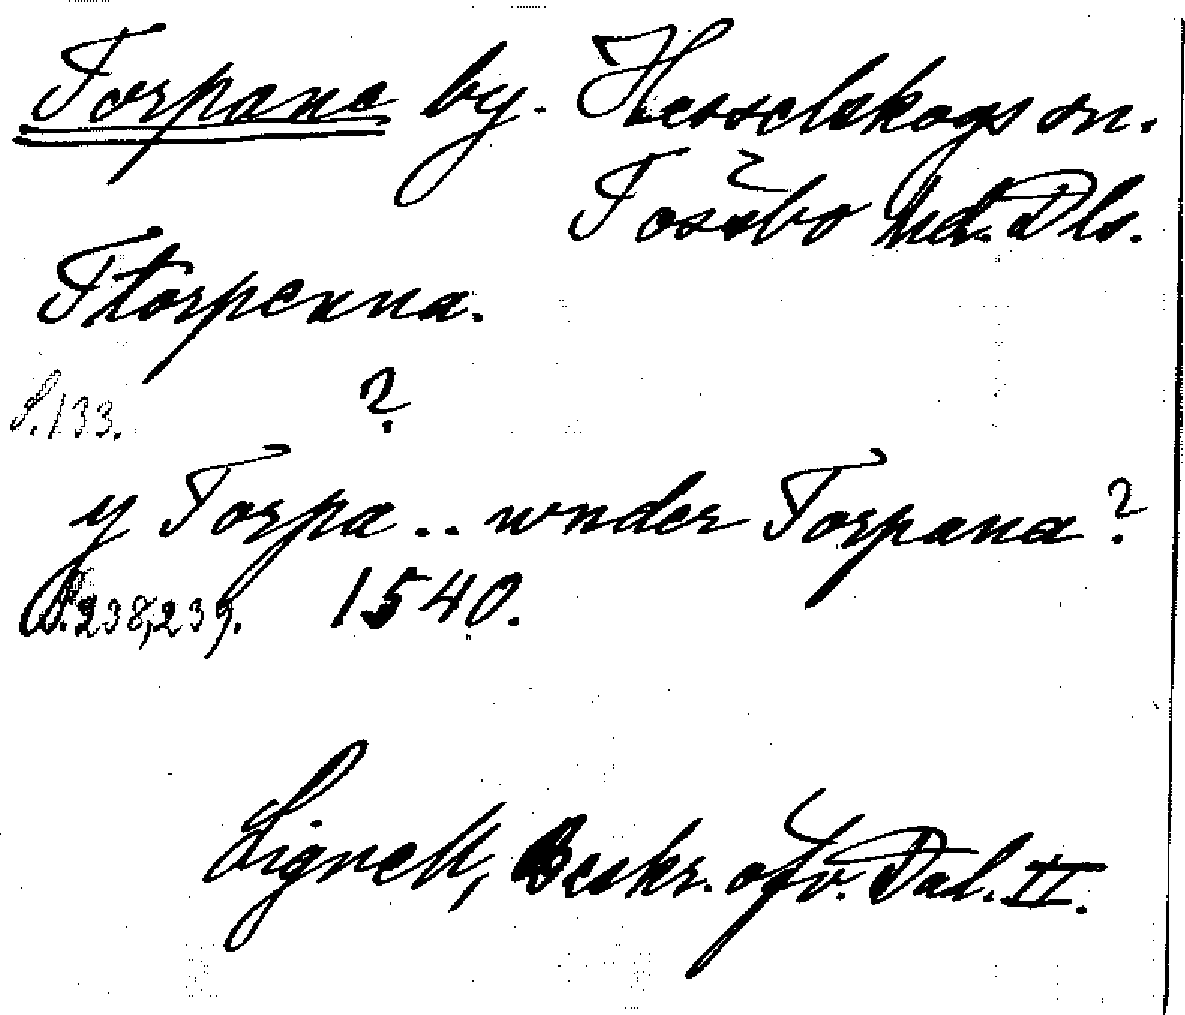 Torpane by. Hesselskogs sn.
Tössbo hd. Dls.
Ttorpenna.
S. 133. ?
y Torpa .. wnder Torpana?
S. 238, 239. 1540.
Lignell, Beskr. öfv. Dal. II.